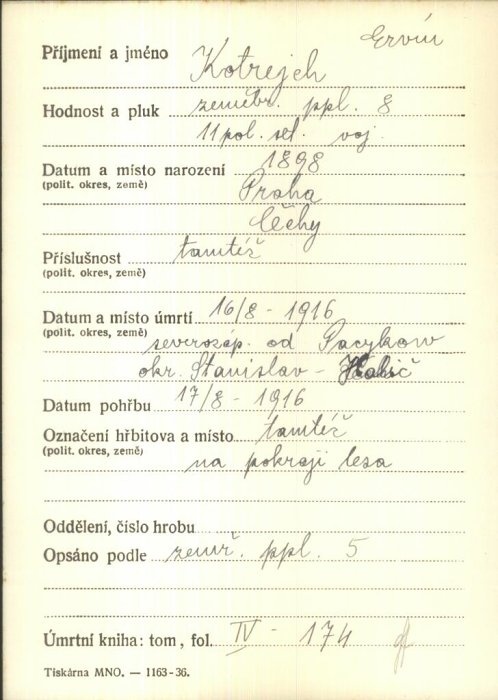 Ervín
Příjmení a jméno Kotrejch
Hodnost a pluk zeměbr. ppl. 8
11 pol. set. voj.
Datum a místo narození 1898
(polit. okres, země) Praha
Čěchy
Příslušnost tamtéž
(polit. okres, země)
Datum a místo úmrtí 16/8 - 1916
(polit. okres, země) severozáp. od Pacykow
okr. Stanislav - Halič
Datum pohřbu 17/8 - 1916
Označení hřbitova a místo tamtéž
(polit. okres, země) na pokraji lesa
Oddělení, číslo hrobu
Opsáno podle zemř. ppl. 5
Úmrtní kniha: tom, fol. IV - 174
Tiskárna MNO. — 1163-36.